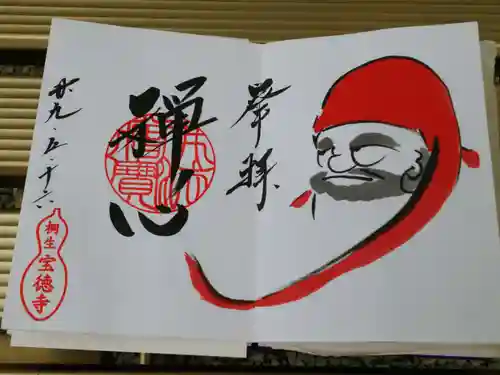 奉拝
禅心
廿九・五・十六
桐生
宝徳寺